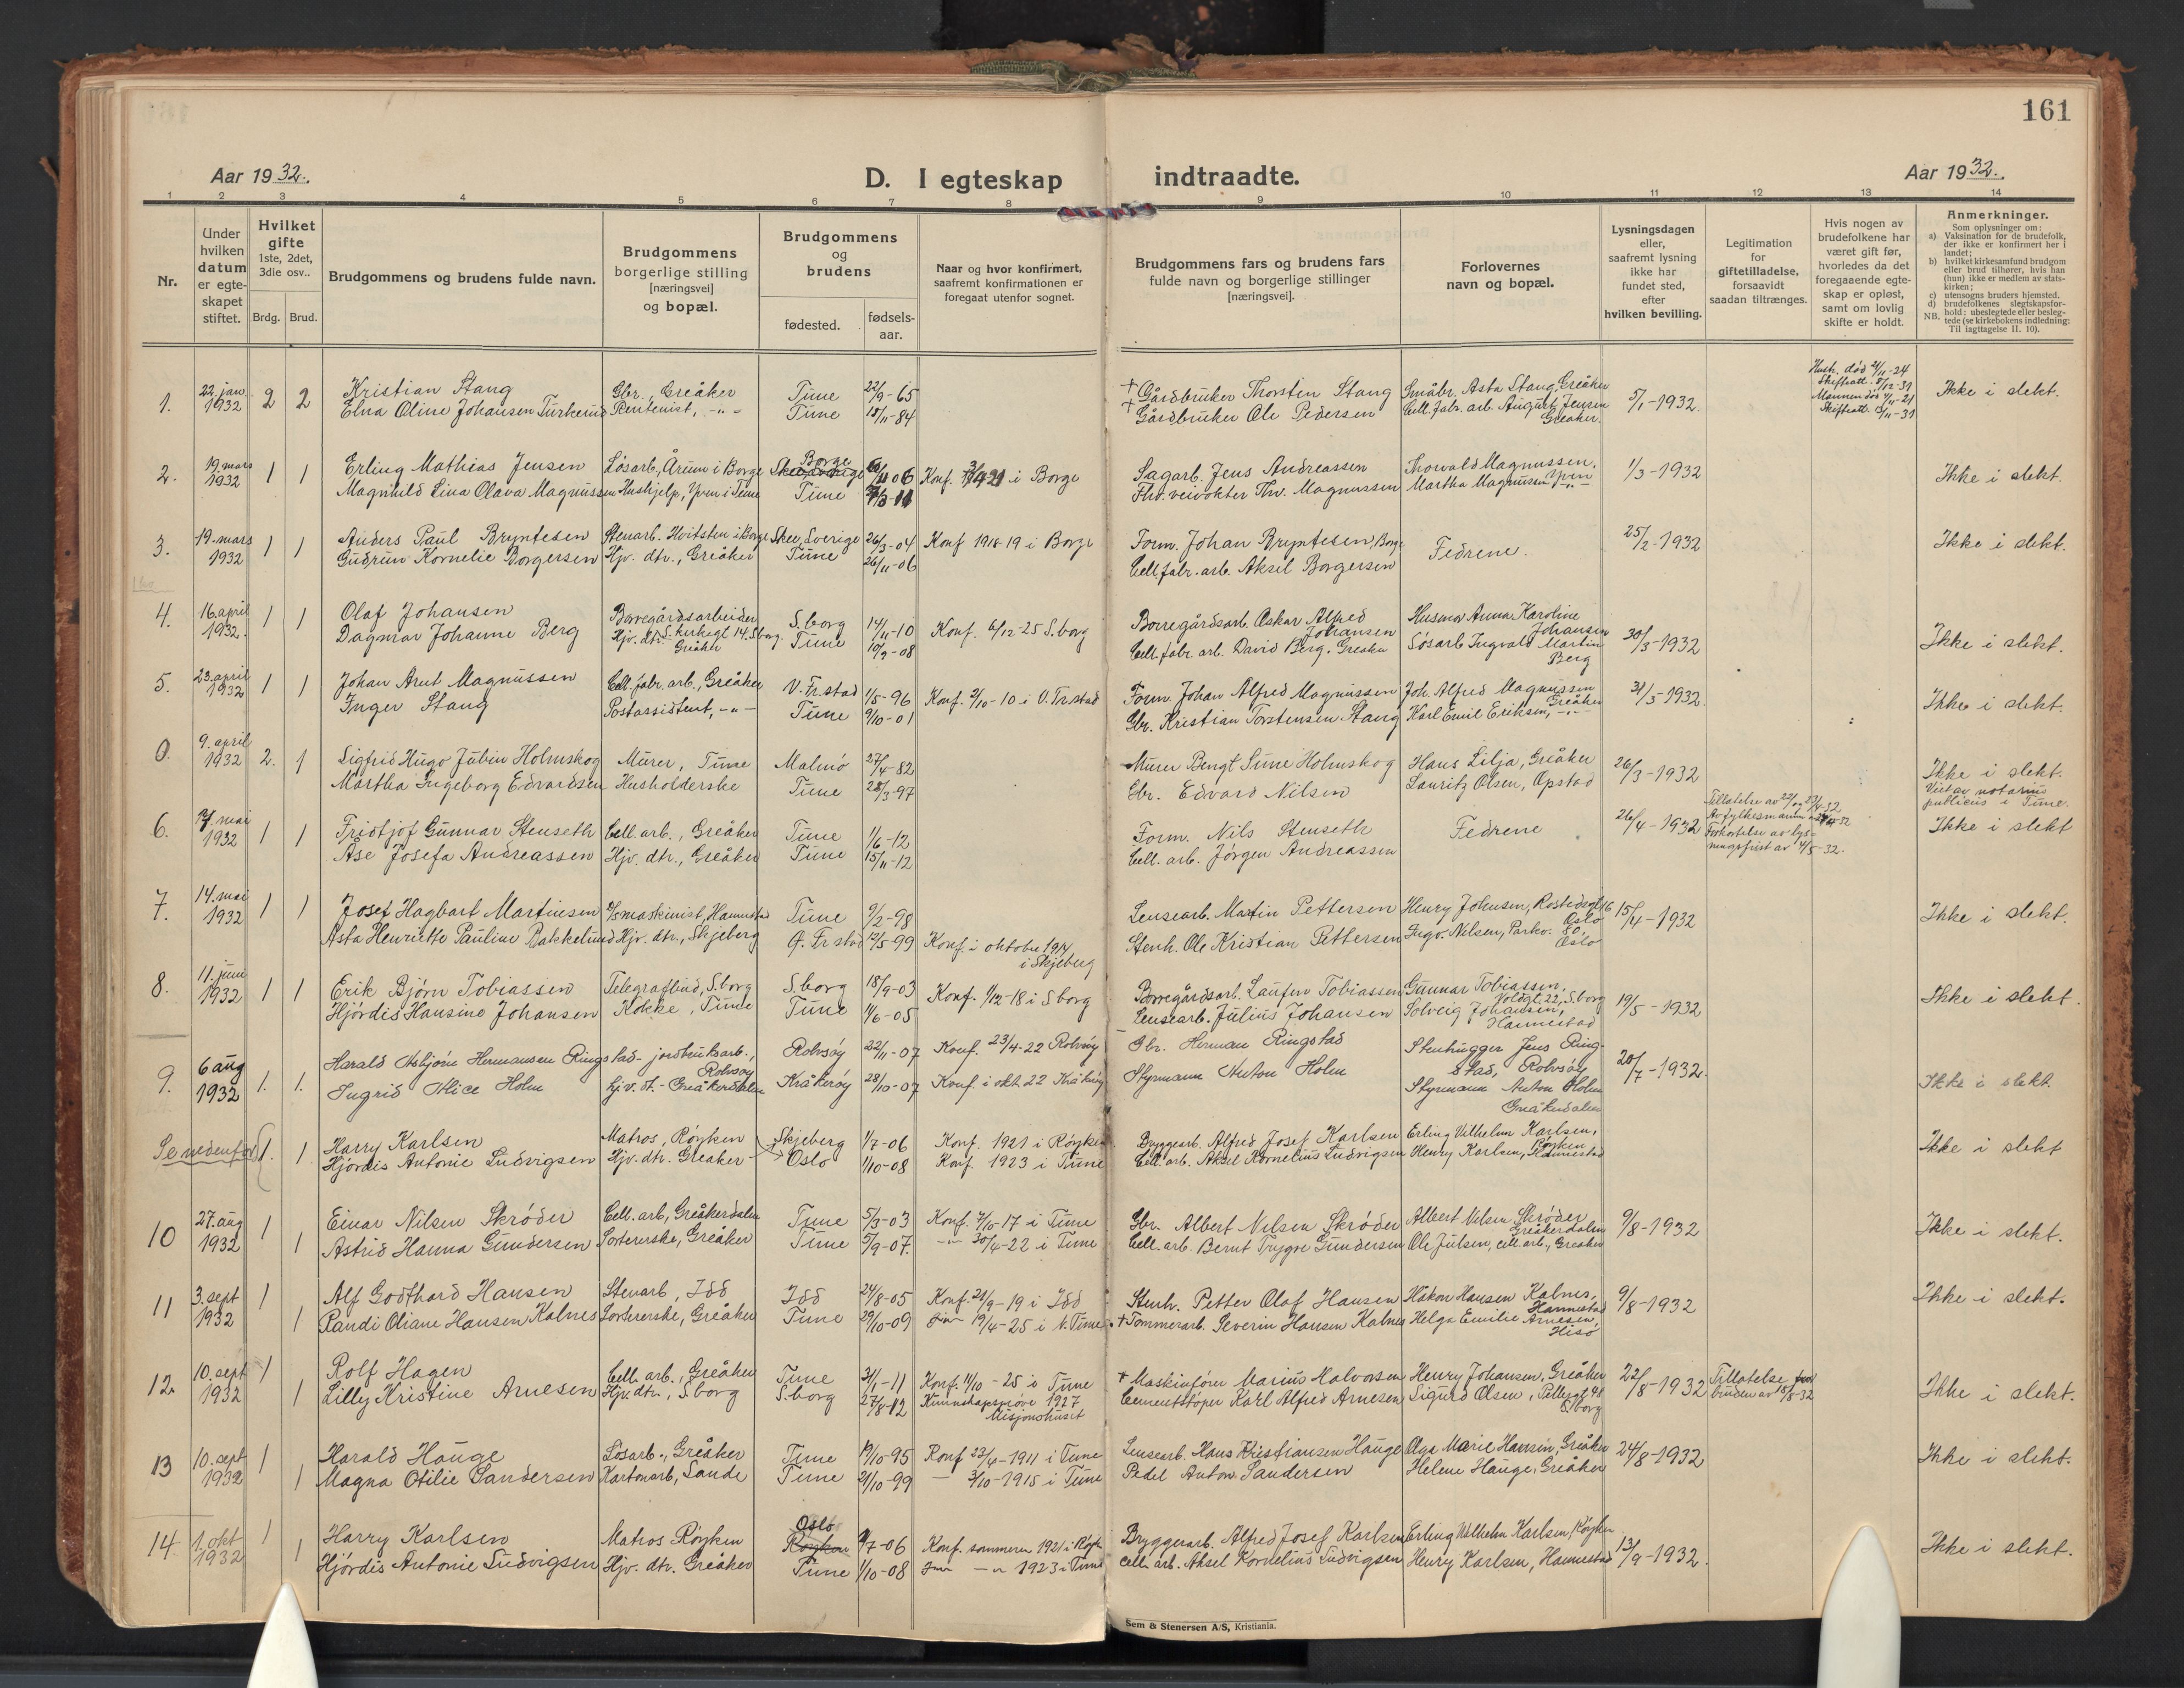 161
Aar 1932.
D. I egteskap indtraadte.
Aar 1932.
1 2 3 4 5 6 7 8 9 10 11 12 13 14
Nr.
Under hvilken datum er egte-skapet stiftet.
Hvilket gifte 1ste, 2det, 3die osv..
Brdg. Brud.
Brudgommens og brudens fulde navn.
Brudgommens borgerlige stilling [næringsvei] og bopæl.
Brudgommens og brudens
fødested. fødsels-aar.
Naar og hvor konfirmert, saafremt konfirmationen er foregaat utenfor sognet.
Brudgommens fars og brudens fars fulde navn og borgerlige stillinger [næringsvei].
Forlovernes navn og bopæl.
Lysningsdagen eller, saafremt lysning ikke har fundet sted, efter hvilken bevilling.
Legitimation for giftetilladelse, forsaavidt saadan tiltrænges.
Hvis nogen av brudefolkene har været gift før, hvorledes da det foregaaende egte-skap er opløst, samt om lovlig skifte er holdt.
Anmerkninger.
Som oplysninger om:
a) Vaksination for de brudefolk, der ikke er konfirmert her i landet;
b) hvilket kirkesamfund brudgom eller brud tilhører, hvis han (hun) ikke er medlem av stats-kirken;
c) utensogns bruders hjemsted.
d) brudefolkenes slegtskapsfor-hold: ubeslegtede eller besleg-tede (se kirkebokens indledning:
NB. Til iagttagelse II. 10).
1. 22. jan. 1932 2 2 Kristian Stang Gbr., Greåker Tune 22/9-65 + Gårdbruker Thorsten Stang Småbr. Asta Stang, Greåker 5/1-1932. Hust. død 21/11-24 Ikke i slekt.
Elna Oline Johansen Turkerud Rentenist, -"- Tune 18/11-84 + Gårdbruker Ole Pedersen Cell. fabr. arb. August Jensen Greåker. Mannen død
2. 19. mars 1932 1 1 Erling Mathias Jensen Løsarb, Årum i Borge Borge 06 Konf. i Borge Sagarb. Jens Andreassen Thorvald Magnussen, 1/3-1932 Ikke i slekt.
Magnhild Lina Olava Magnussen Hushjelp, Yven i Tune Tune Fhv. veivokter Thv. Magnussen Martha Magnussen Yven
3. 19. mars 1932 1 1 Anders Paul Bryntesen Stenarb. Hvitsten i Borge Skee, Sverige 26/3-04 Konf 1918-19 i Borge Form. Johan Bryntesen, Borge Fedrene. 25/2-1932 Ikke i slekt.
Gudrun Kornelie Borgersen Hjv. dtr., Greåker Tune 26/11-06 Cell. fabr. arb. Aksel Borgersen
4. 16. april 1932. 1 1 Olaf Johansen Borregårdsarbeider S. borg 14/11-10 Konf. 6/12-25 S. borg Borregårdsarb. Oskar Alfred Johansen Husmor Anna Karoline Johansen 30/3-1932 Ikke i slekt.
Dagmar Johanne Berg Hjv. dtr. Greåker Tune 10/9-08 Cell. fabr. arb. David Berg. Greåker Løsarb Ingvald Martin Berg
5. 23. april 1932 1 1 Johan Arnt Magnussen Cell. fabr. arb., Greåker V. Fr. stad 1/5-96 Konf. 2/10-10 i V. Fr. stad Form. Johan Alfred Magnussen Joh. Alfred Magnussen Greåker 31/3-1932 Ikke i slekt.
Inger Stang Postassistent, -"- Tune 9/10-01 Gbr. Kristian Torstensen Stang Karl Emil Eriksen, -"-
0. 9. april 1932 2. 1 Sigfrid Hugo Jubin Holmskog Murer, Tune Malmø 27/4-82 Murer Bengt Sune Holmskog Hans Lilja, Greåker 26/3-1932 Ikke i slekt.
Martha Ingeborg Edvardsen Husholderske Tune 28/3-97 Gbr. Edvard Nilsen Lauritz Olsen, Opstad Viet av notarius publicus i Tune.
6. 17. mai 1932 1 1 Fridtjof Gunnar Stenseth Cell. arb., Greåker Tune 1/6-12 Form. Nils Stenseth Fedrene 26/4-1932 Tillatelse av fylkesmannen Forkortelse av lys-ningsfrist av 4/5-32. Ikke i slekt
Åse Josefa Andreassen Hjv. dtr., Greåker Tune 15/11-12 Cell. arb. Jørgen Andreassen
7. 14. mai 1932 1 1 Josef Hagbart Martinsen maskinist, Hannestad Tune 9/2-98 Lensearb. Martin Pettersen Henry Johnsen, Oslo 15/4-1932 Ikke i slekt.
Asta Henriette Pauline Bakkelund Hjv. dtr., Skjeberg Ø. Fr stad 12/5-99 Konf. i oktober 1914 i Skjeberg Stenh. Ole Kristian Pettersen Ingv. Nilsen, Parkv. 80, Oslo
8. 11. juni 1932 1 1 Erik Bjørn Tobiassen Telegrafbud, S. borg S. borg 18/9-03 Konf. 1/12-18 i S borg Borregårdsarb. Laufen Tobiassen Gunnar Tobiassen, Voldgt. 22, S. borg 19/5-1932 Ikke i slekt.
Hjørdis Hansine Johansen Kokke, Tune Tune 4/6-05 Lensearb. Julius Johansen Solveig Johansen, Hannestad
9. 6 aug 1932 1. 1. Harald Asbjørn Hermansen Ringstad - jordbruksarb., Rolvsøy Rolvsøy 22/11-07 Konf. 23/4-22 Rolvsøy Gbr. Herman Ringstad Stenhugger Jens Ring-stad, Rolvsøy 20/7-1932. Ikke i slekt
Ingrid Alice Holm hjv. dt. - Greåkerdalen Kråkerøy 28/10-07 Konf. i okt. 22 Kråkerøy Styrmann Anton Holm Styrmann Anton Holm Greåkerdalen
Se nedenfor 1. 1 Harry Karlsen Matros, Røyken Skjeberg 1/7-06 Konf. 1921 i Røyken Bryggearb. Alfred Josef Karlsen Erling Vilhelm Karlsen, Røyken Ikke i slekt
Hjørdis Antonie Ludvigsen Hjv. dtr. Greåker Oslo 1/10-08 Konf. 1923 i Tune Cell. arb. Aksel Kornelius Ludvigsen Henry Karlsen, Hannestad
10 27. aug 1932 1 Einar Nilsen Skrøder Cell. arb, Greåkerdalen Tune 5/3-03 Konf. 7/10-17 i Tune Gbr. Albert Nilsen Skrøder Albert Nilsen Skrøder Greåkerdalen 9/8-1932 Ikke i slekt.
1 Astrid Hanna Gundersen Sorterske, Greåker Tune 5/9-07. -"- 30/4-22 i Tune Cell. arb. Bernt Trygve Gundersen Ole Julsen, cell. arb., Greåker
11 3. sept 1932 1 Alf Godthard Hansen Stenarb, Idd Idd 24/8-05 Konf. 21/9-19 i Idd Stenh. Petter Olaf Hansen Håkon Hansen Kalnes, Hannestad 9/8-1932 Ikke i slekt.
1 Randi Oliane Hansen Kalnes Sorterske, Greåker Tune 29/10-09 19/4-25 i N. Tune + Tømmerarb. Severin Hansen Kalnes Helga Emilie Arnesen, Hisø
12 10. sept 1932 1 Rolf Hagen Cell. arb., Greåker Tune 21/1-11 Konf. 11/10-25 i Tune + Maskinfører Marius Halvorsen Henry Johansen, Greåker 22/8-1932 Tillatelse for bruden av 18/8-32 Ikke i slekt.
1 Lilly Kristine Arnesen Hjv. dtr., S borg S. borg 27/8-12 Kunnskapsprøve 1927 Misjonshuset Cementstøper Karl Alfred Arnesen Sigurd Olsen, S. borg
13 10. sept 1932 1 Harald Hauge Løsarb., Greåker Tune 19/10-95 Konf 23/4-1911 i Tune Lensearb. Hans Kristiansen Hauge Olga Marie Hansen, Greåker 24/8-1932 Ikke i slekt.
1 Magna Otilie Sandersen Kartonarb, Sande Tune 21/10-99 — 3/10-1915 i Tune Pedel Anton Sandersen Helene Hauge, Greåker
14 1. okt 1932 1 Harry Karlsen Matros Røyken Oslo Røyken 7-06 Konf. sommeren 1921 i Røyk. Bryggerarb. Alfred Josef Karlsen Erling Vilhelm Karlsen, Røyken 13/9-1932. Ikke i slekt.
1 Hjørdis Antonie Ludvigsen Hjv. dtr. Greåker Tune 1/10-08 —"— 1923 i Tune Cell. arb. Aksel Kornelius Ludvigsen Henry Karlsen, Hannestad
Sem & Stenersen A/S, Kristiania.